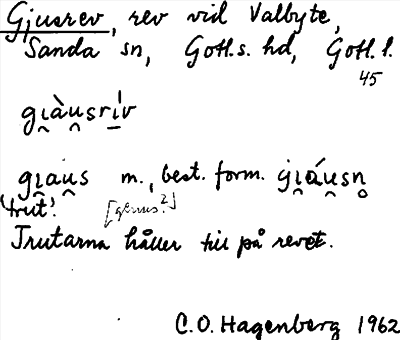 Gjusrev, rev vid Valbyte,
Sanda sn, Gotl.s. hd, Gotl. l.
45
gı̯àu̯srı̱́v
gı̯au̯s m., best. form. gı̯áu̯sn̥
'trut'. [genus?]
Trutarna håller till på revet.
C.O. Hagenberg 1962